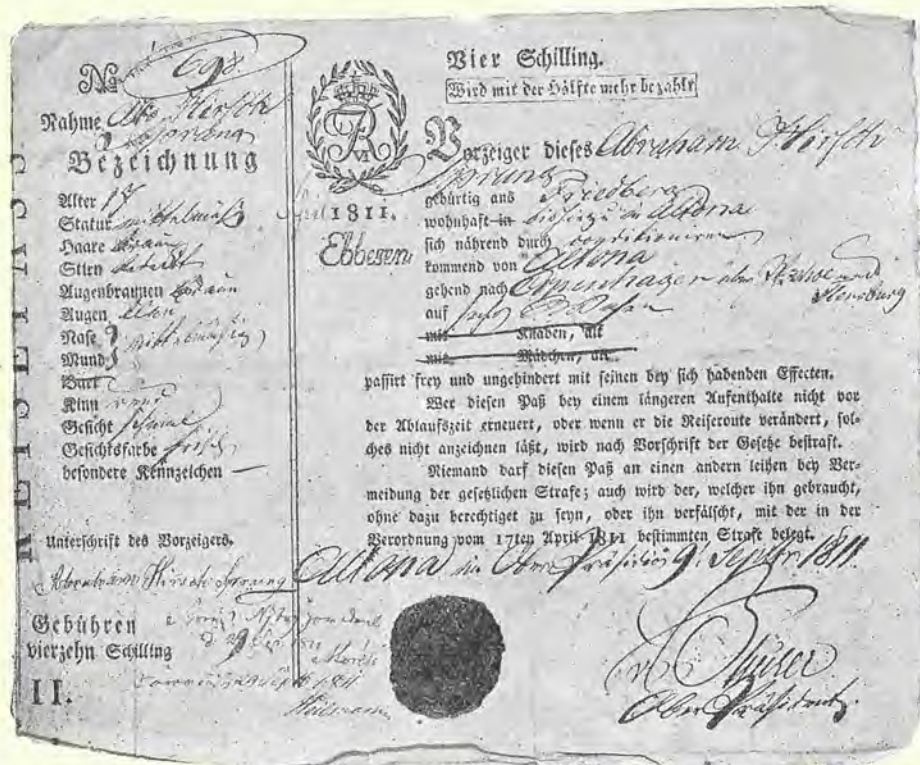 REISEPASS
No 698.
Nahme Abr. Hirsch
Sprang
Bezeichnung
Alter 17
Statur mittelmäß
Haare braun
Stirn bedeckt
Augenbraunen braun
Augen
Nase mittelmäßig
Mund
Bart
Kinn rund
Gesicht schmal
Gesichtsfarbe frisch
besondere Kennzeichen —
Unterschrift des Vorzeigers.
Abraham Hirsch Sprang
Gebühren
vierzehn Schilling
II.
VI
1811.
Ebbesen
Vier Schilling.
Wird mit der Hälfte mehr bezahlt
Vorzeiger dieses Abraham Hirsch
Sprang
gebürtig aus Friedberg
wohnhaft in Altona
sich nährend durch conditioniren
kommend von Altona
gehend nach Copenhagen über und
Flensburg
auf
mit Knaben, alt
mit Mädchen, alt
passirt frey und ungehindert mit seinen bey sich habenden Effecten.
Wer diesen Paß bey einem längeren Aufenthalte nicht vor
der Ablaufszeit erneuert, oder wenn er die Reiseroute verändert, sol-
ches nicht anzeichnen läßt, wird nach Vorschrift der Gesetze bestraft.
Niemand darf diesen Paß an einen andern leihen bey Ver-
meidung der gesetzlichen Strafe; auch wird der, welcher ihn gebraucht,
ohne dazu berechtiget zu seyn, oder ihn verfälscht, mit der in der
Verordnung vom 17ten April 1811 bestimmten Strafe belegt.
Altona im Ober Präsidio 9 Septbr 1811.
Ober Präsident